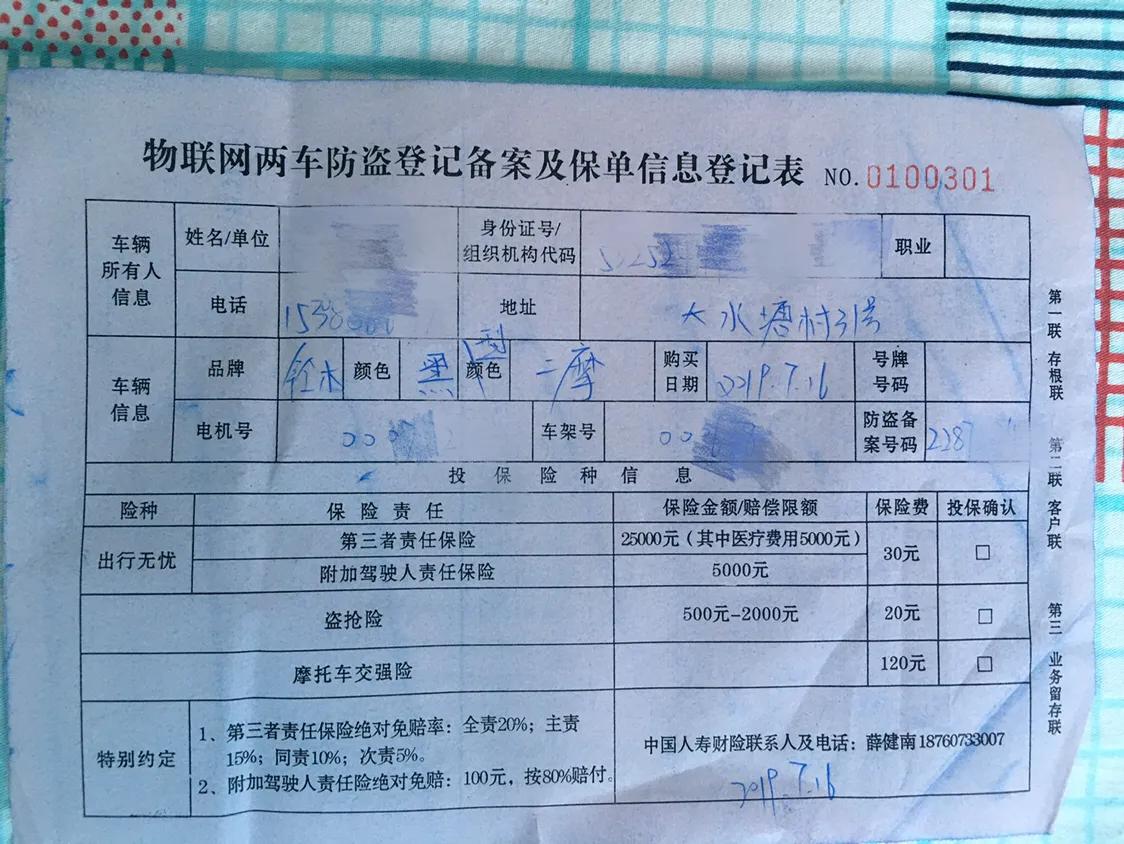 物联网两车防盗登记备案及保单信息登记表 NO.0100301
车辆所有人信息 姓名/单位 身份证号/组织机构代码 职业
电话 地址 大水塘村31号
车辆信息 品牌 铃木 颜色 黑 颜色 型 二摩 购买日期 2019.7.16 号牌号码
电机号 00 车架号 00 防盗备案号码 228
投保险种信息
险种 保险责任 保险金额/赔偿限额 保险费 投保确认
出行无忧 第三者责任保险 25000元(其中医疗费用5000元) 30元 □
附加驾驶人责任保险 5000元
盗抢险 500元-2000元 20元 □
摩托车交强险 120元 □
特别约定 1、第三者责任保险绝对免赔率：全责20%；主责
15%；同责10%；次责5%。
2、附加驾驶人责任险绝对免赔：100元，按80%赔付。
中国人寿财险联系人及电话：薛健南18760733007
2019.7.16
第一联 存根联 第二联 客户联 第三 业务留存联